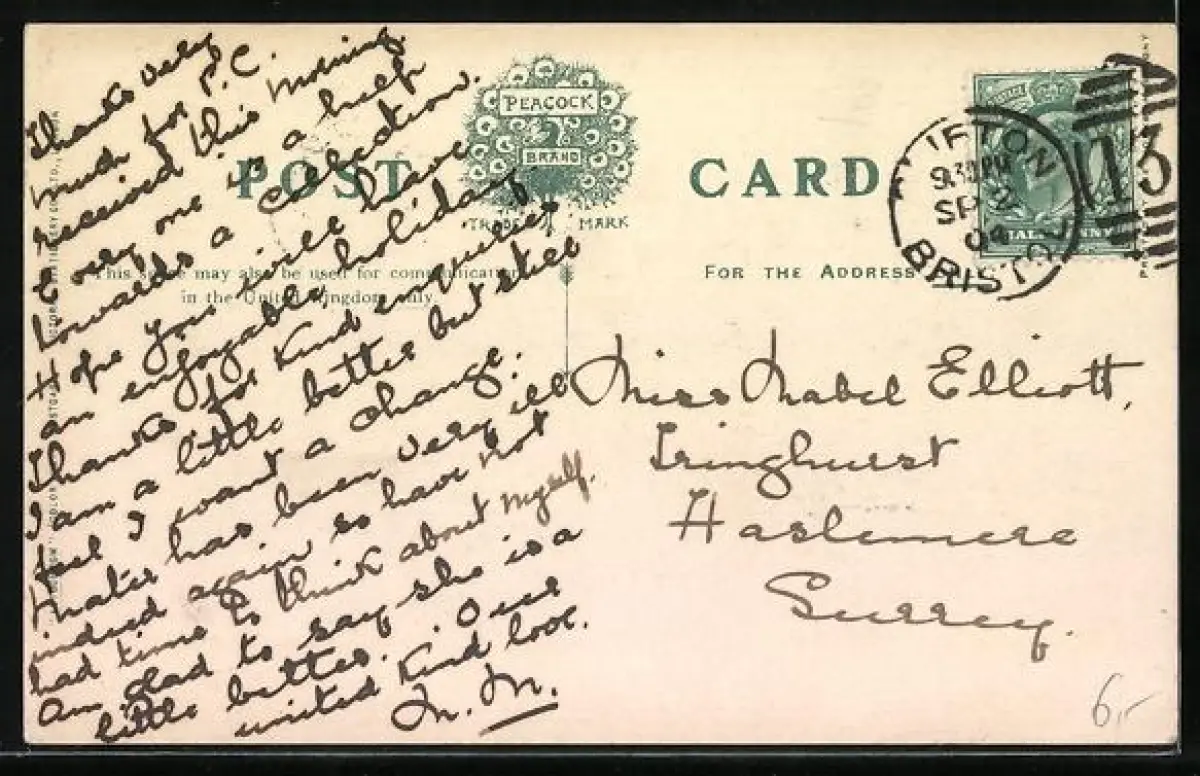 Thanks very
much for P.C.
received this morning.
Every one is a help
towards a collection.
Hope you will have
an enjoyable holiday.
Thanks for kind enquiries
I am a little better but still
feel I want a change.
Mater has been very ill
indeed again so have not
had time to think about myself.
Am glad to say she is a
little better. Our
united kind love.
M. M.
POST CARD
PEACOCK
BRAND
TRADE MARK
This space may also be used for communication
in the United Kingdom only.
FOR THE ADDRESS
CLIFTON
9.30PM
SP 2
04
BRISTOL
113
Miss Mabel Elliott,
Tringhurst
Haslemere
Surrey.
6,-